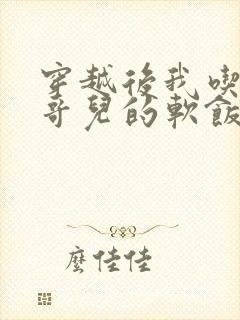 穿越後我喫
哥兒的軟飯
麼佳佳